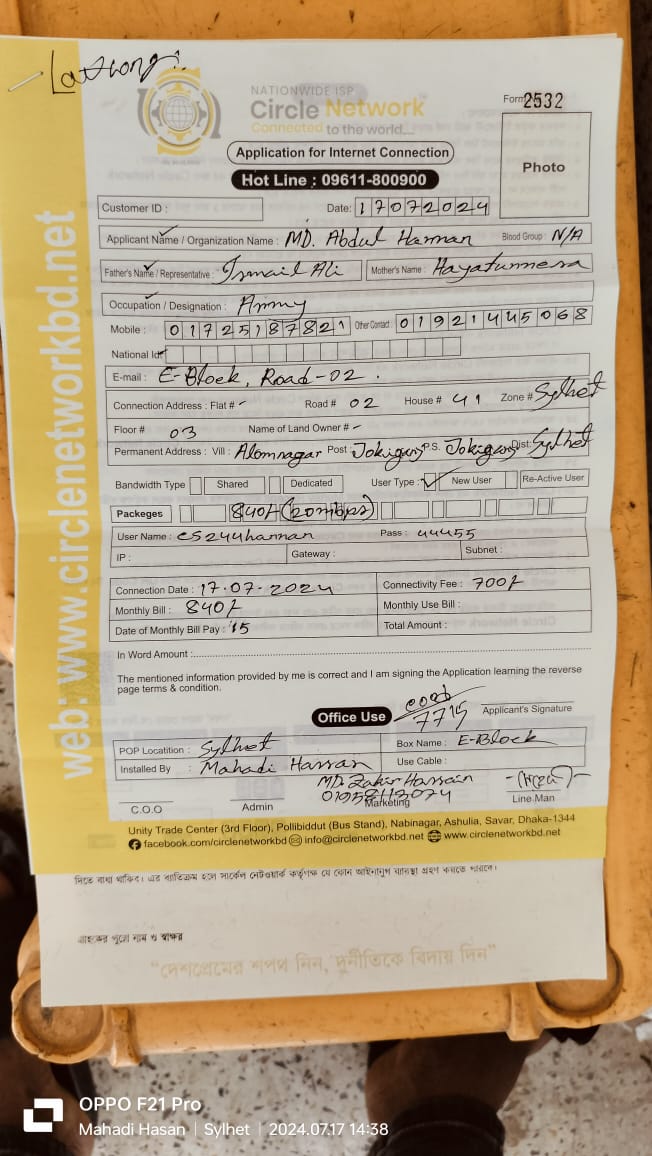 NATIONWIDE ISP
Circle Network
Connected to the world....
Form 2532
Application for Internet Connection
Hot Line : 09611-800900
Photo
Customer ID :
Date: 17072024
Applicant Name / Organization Name : MD. Abdul Hannan Blood Group : N/A
Father's Name / Representative : Ismail Ali Mother's Name : Hayatunnesa
Occupation / Designation : Army
Mobile : 01725187821 Other Contact : 01921445068
National Id
E-mail : E-Block, Road-02.
Connection Address : Flat # - Road # 02 House # 41 Zone # Sylhet
Floor # 03 Name of Land Owner # -
Permanent Address : Vill : Alomnagar Post : Jokigonj P.S. Jokigonj Dist: Sylhet
Bandwidth Type Shared Dedicated User Type : ✓ New User Re-Active User
Packeges 840/- (20mbps)
User Name : cs244hannan Pass : 44455
IP : Gateway : Subnet :
Connection Date : 17.07.2024 Connectivity Fee : 700/-
Monthly Bill : 840/- Monthly Use Bill :
Date of Monthly Bill Pay : 15 Total Amount :
In Word Amount :
The mentioned information provided by me is correct and I am signing the Application learning the reverse
page terms & condition.
Office Use 7715 Applicant's Signature
POP Locatition : Sylhet Box Name : E-Block
Installed By : Mahadi Hassan Use Cable :
MD. Zakir Hossain
C.O.O Admin Marketing Line Man
Unity Trade Center (3rd Floor), Pollibiddut (Bus Stand), Nabinagar, Ashulia, Savar, Dhaka-1344
facebook.com/circlenetworkbd info@circlenetworkbd.net www.circlenetworkbd.net
web: www.circlenetworkbd.net
দিতে বাধ্য থাকিব। এর ব্যতিক্রম হলে সার্কেল নেটওয়ার্ক কর্তৃপক্ষ যে কোন আইনানুগ ব্যবস্থা গ্রহণ করতে পারবে।
গ্রাহকের পুরো নাম ও স্বাক্ষর
“দেশপ্রেমের শপথ নিন, দুর্নীতিকে বিদায় দিন”
OPPO F21 Pro
Mahadi Hasan | Sylhet | 2024.07.17 14:38